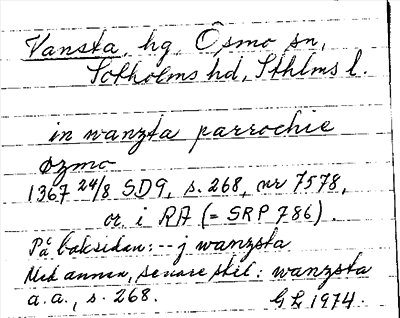 Vansta, hg, Ösmo sn,
Sotholms hd, Sthlms l.
in wanzta parrochie
ozmo
1367 24/8 SD9, s. 268, nr 7578,
or. i RA (= SRP 786).
På baksidan: -- j wanzsta
Med annan, senare stil: wanzsta
a.a., s. 268. GL 1974.